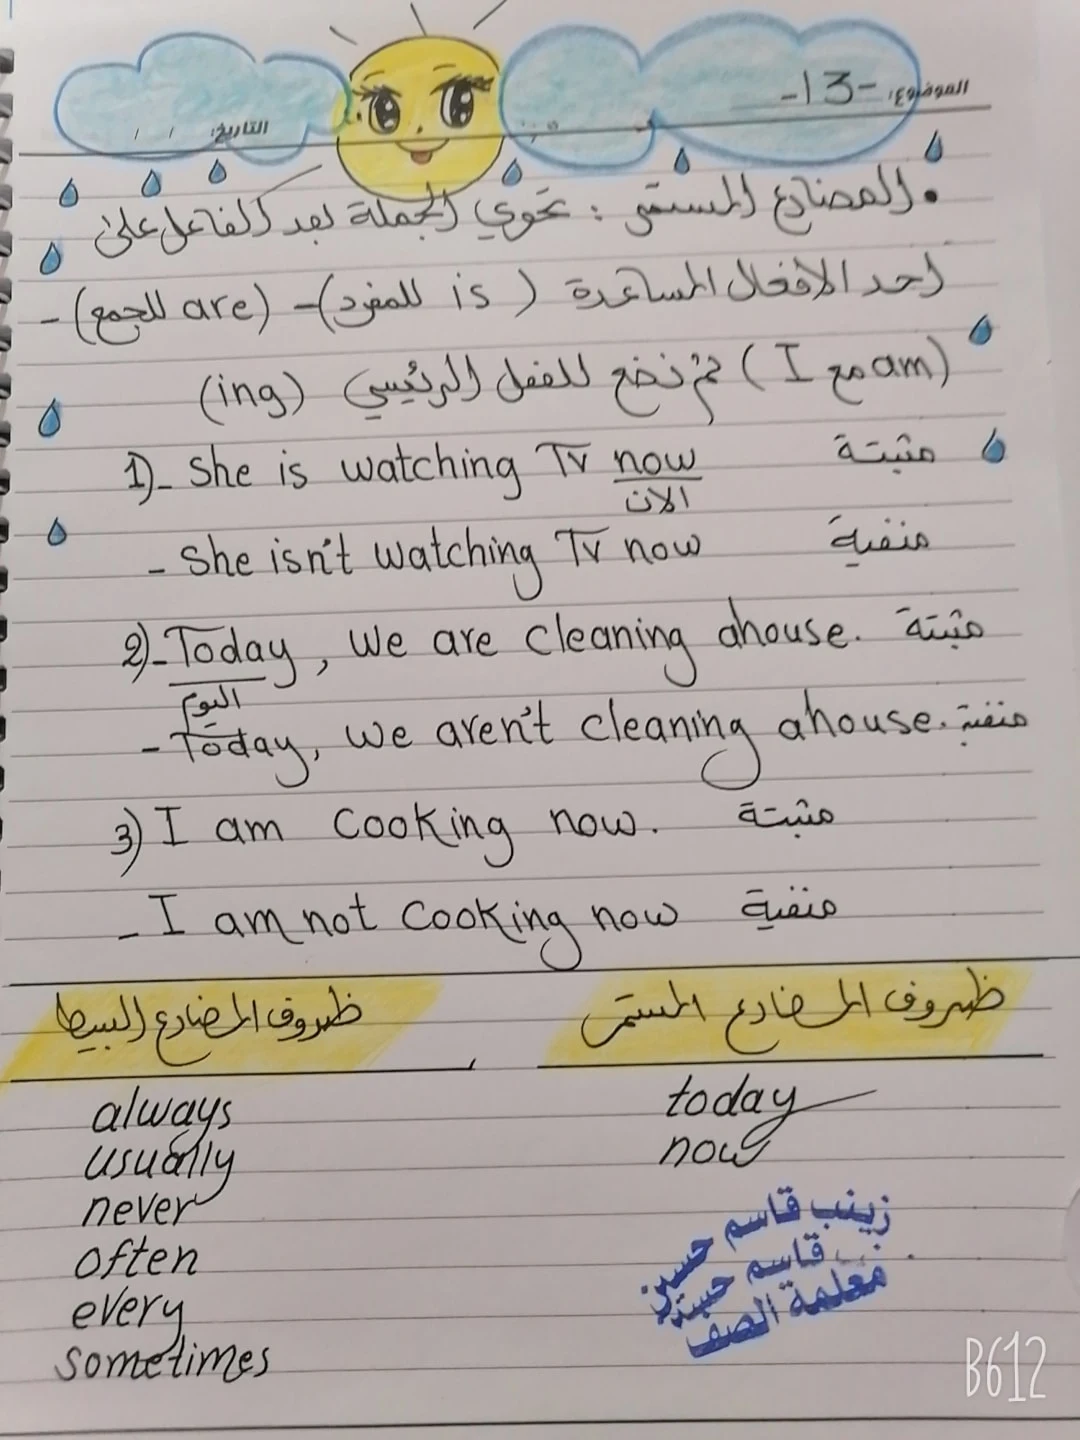 الموضوع: -13-
التاريخ: / /
• المضارع المستمر : تحوي الجملة بعد الفاعل على
احد الافعال المساعدة ( is للمفرد)- (are للجمع) -
(am مع I ) ثم نضع للفعل الرئيسي (ing)
1)- She is watching TV now مثبتة
الان
- She isn't watching TV now منفية
2)- Today, we are cleaning ahouse. مثبتة
اليوم
- Today, we aren't cleaning ahouse. منفية
3) I am cooking now. مثبتة
- I am not cooking now منفية
ظروف المضارع المستمر
today
now
ظروف المضارع البسيط
always
usually
never
often
every
sometimes
زينب قاسم حسين
قاسم
معلمة الصف
B612